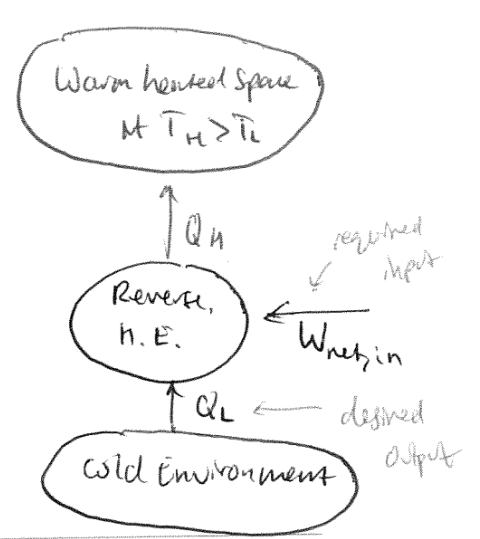 Warm heated space
At TH>TL
QH
required
input
Reverse,
H.E.
Wnet,in
QL
desired
output
Cold Environment